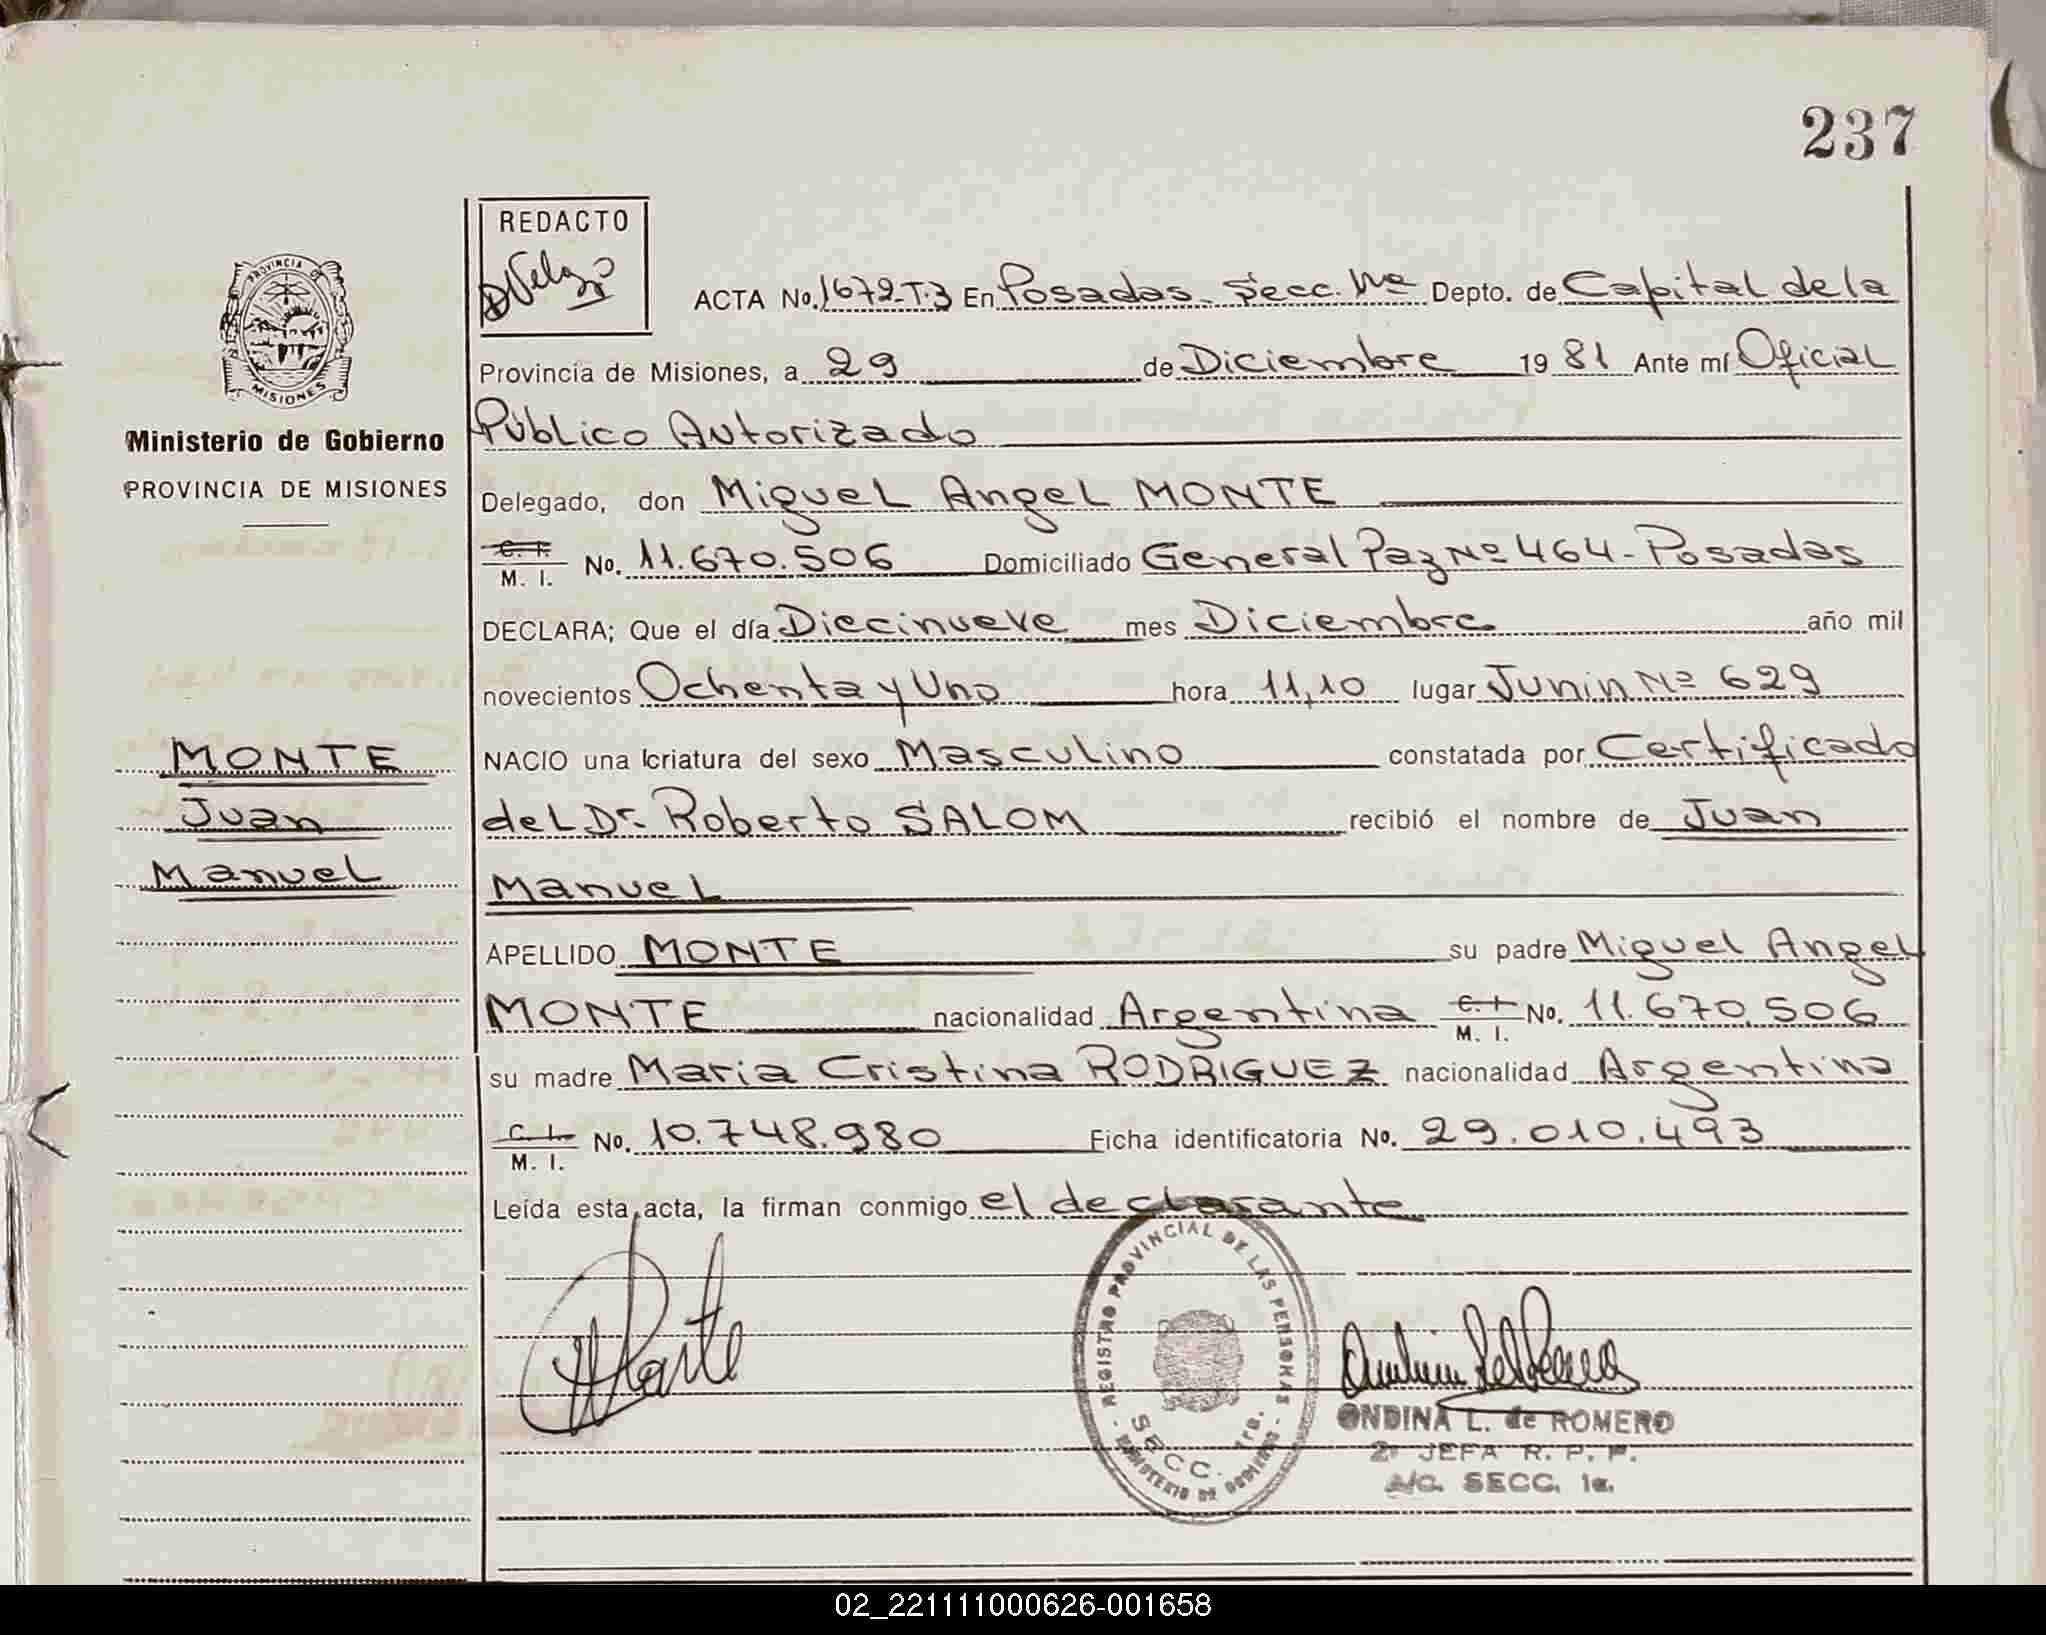 237
REDACTO
PROVINCIA DE
MISIONES
Ministerio de Gobierno
PROVINCIA DE MISIONES
ACTA No. 1672-T.3 En Posadas - Secc. 1ª Depto. de Capital de la
Provincia de Misiones, a 29 de Diciembre 1981 Ante mí Oficial
Público Autorizado
Delegado, don Miguel Angel MONTE
C. I.
M. I. No. 11.670.506 Domiciliado General Paz Nº 464 - Posadas
DECLARA; Que el día Diecinueve mes Diciembre año mil
novecientos Ochenta y Uno hora 11,10 lugar Junin Nº 629
NACIO una criatura del sexo Masculino constatada por Certificado
del Dr. Roberto SALOM recibió el nombre de Juan
Manuel
APELLIDO MONTE su padre Miguel Angel
MONTE nacionalidad Argentina C. I.
M. I. No. 11.670.506
su madre Maria Cristina RODRIGUEZ nacionalidad Argentina
C. I.
M. I. No. 10.748.980 Ficha identificatoria No. 29.010.493
Leída esta acta, la firman conmigo el declarante
MONTE
Juan
Manuel
REGISTRO PROVINCIAL DE LAS PERSONAS
SECC. 1ra.
MINISTERIO DE GOBIERNO
ONDINA L. de ROMERO
2ª JEFA R. P. P.
A/C. SECC. 1a.
02_221111000626-001658